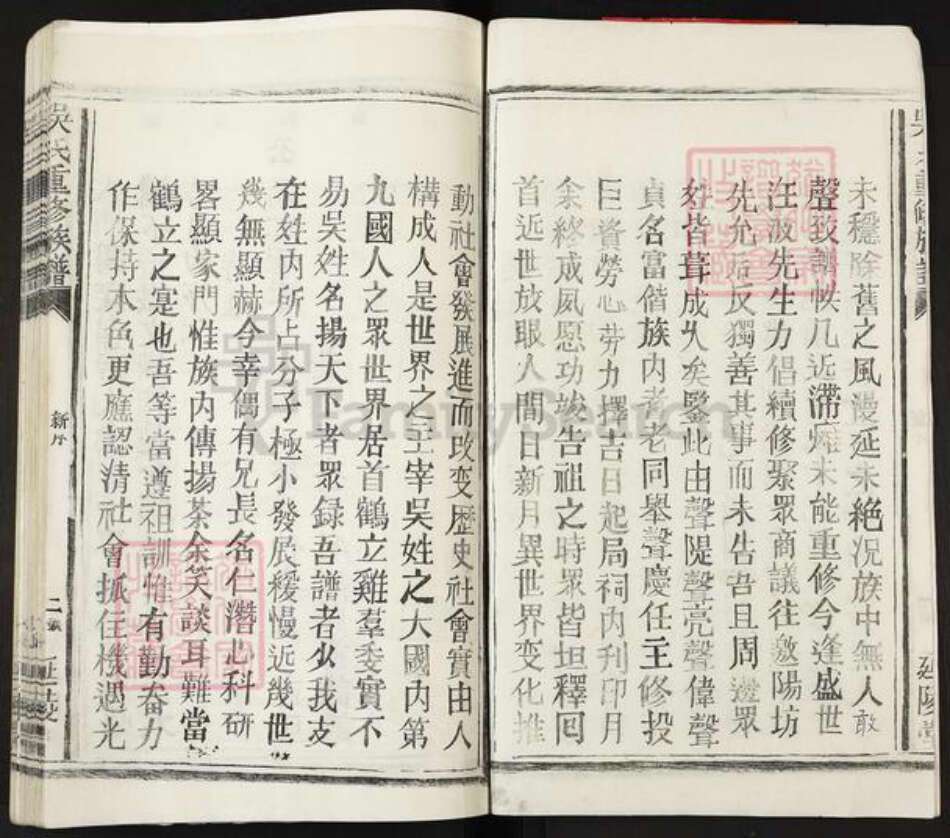 未穩除舊之風漫延未絕況族中無人敢
聲致譜帙几近滯癱未能重修今逢盛世
汪波先生力倡續修聚眾商議往邀陽坊
先允后反獨善其事而未告吾且周邊眾
姓皆葺成久矣鑒此由聲隄聲亮聲偉聲
貞名富偕族內老老同舉聲慶任主修投
巨資勞心劳力擇吉日起局祠內刋印月
余終成夙愿功竣告祖之時眾皆坦釋囘
首近世放眼人間日新月異世界变化推
動社會發展進而改变歷史社會實由人
構成人是世界之主宰吳姓之大國內第
九國人之眾世界居首鶴立雞羣委實不
易吳姓名揚天下者眾録吾譜者少我支
在姓內所占分子極小發展緩慢近幾世
幾無顯赫今幸偶有兄長名仁濳心科研
畧顯家門惟族內傳揚茶余笑談耳難當
鶴立之寔也吾等當遵祖訓惟有勤奋力
作保持本色更應認清社會抓住機遇光
吳氏重修族譜
新序
二
延陵